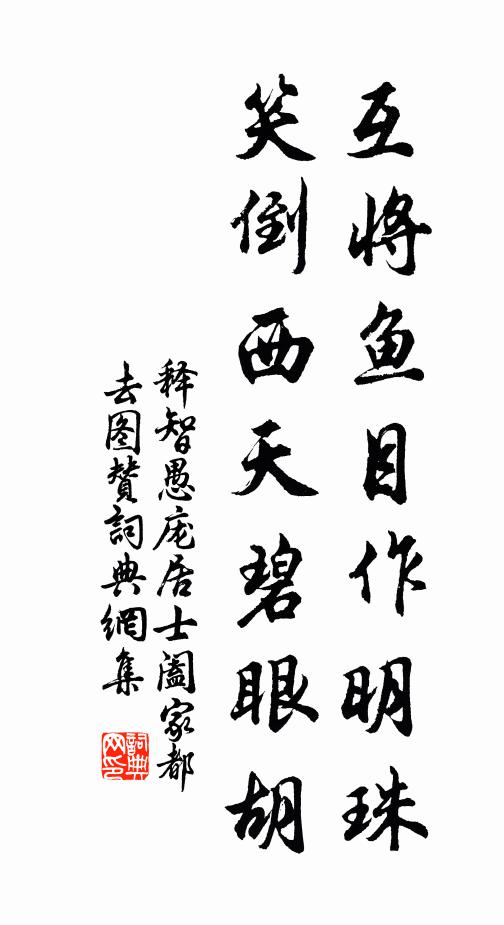 互将鱼目作明珠
笑倒西天碧眼胡
释智愚庞居士阖家都
去图赞詞典網集
詞典网印